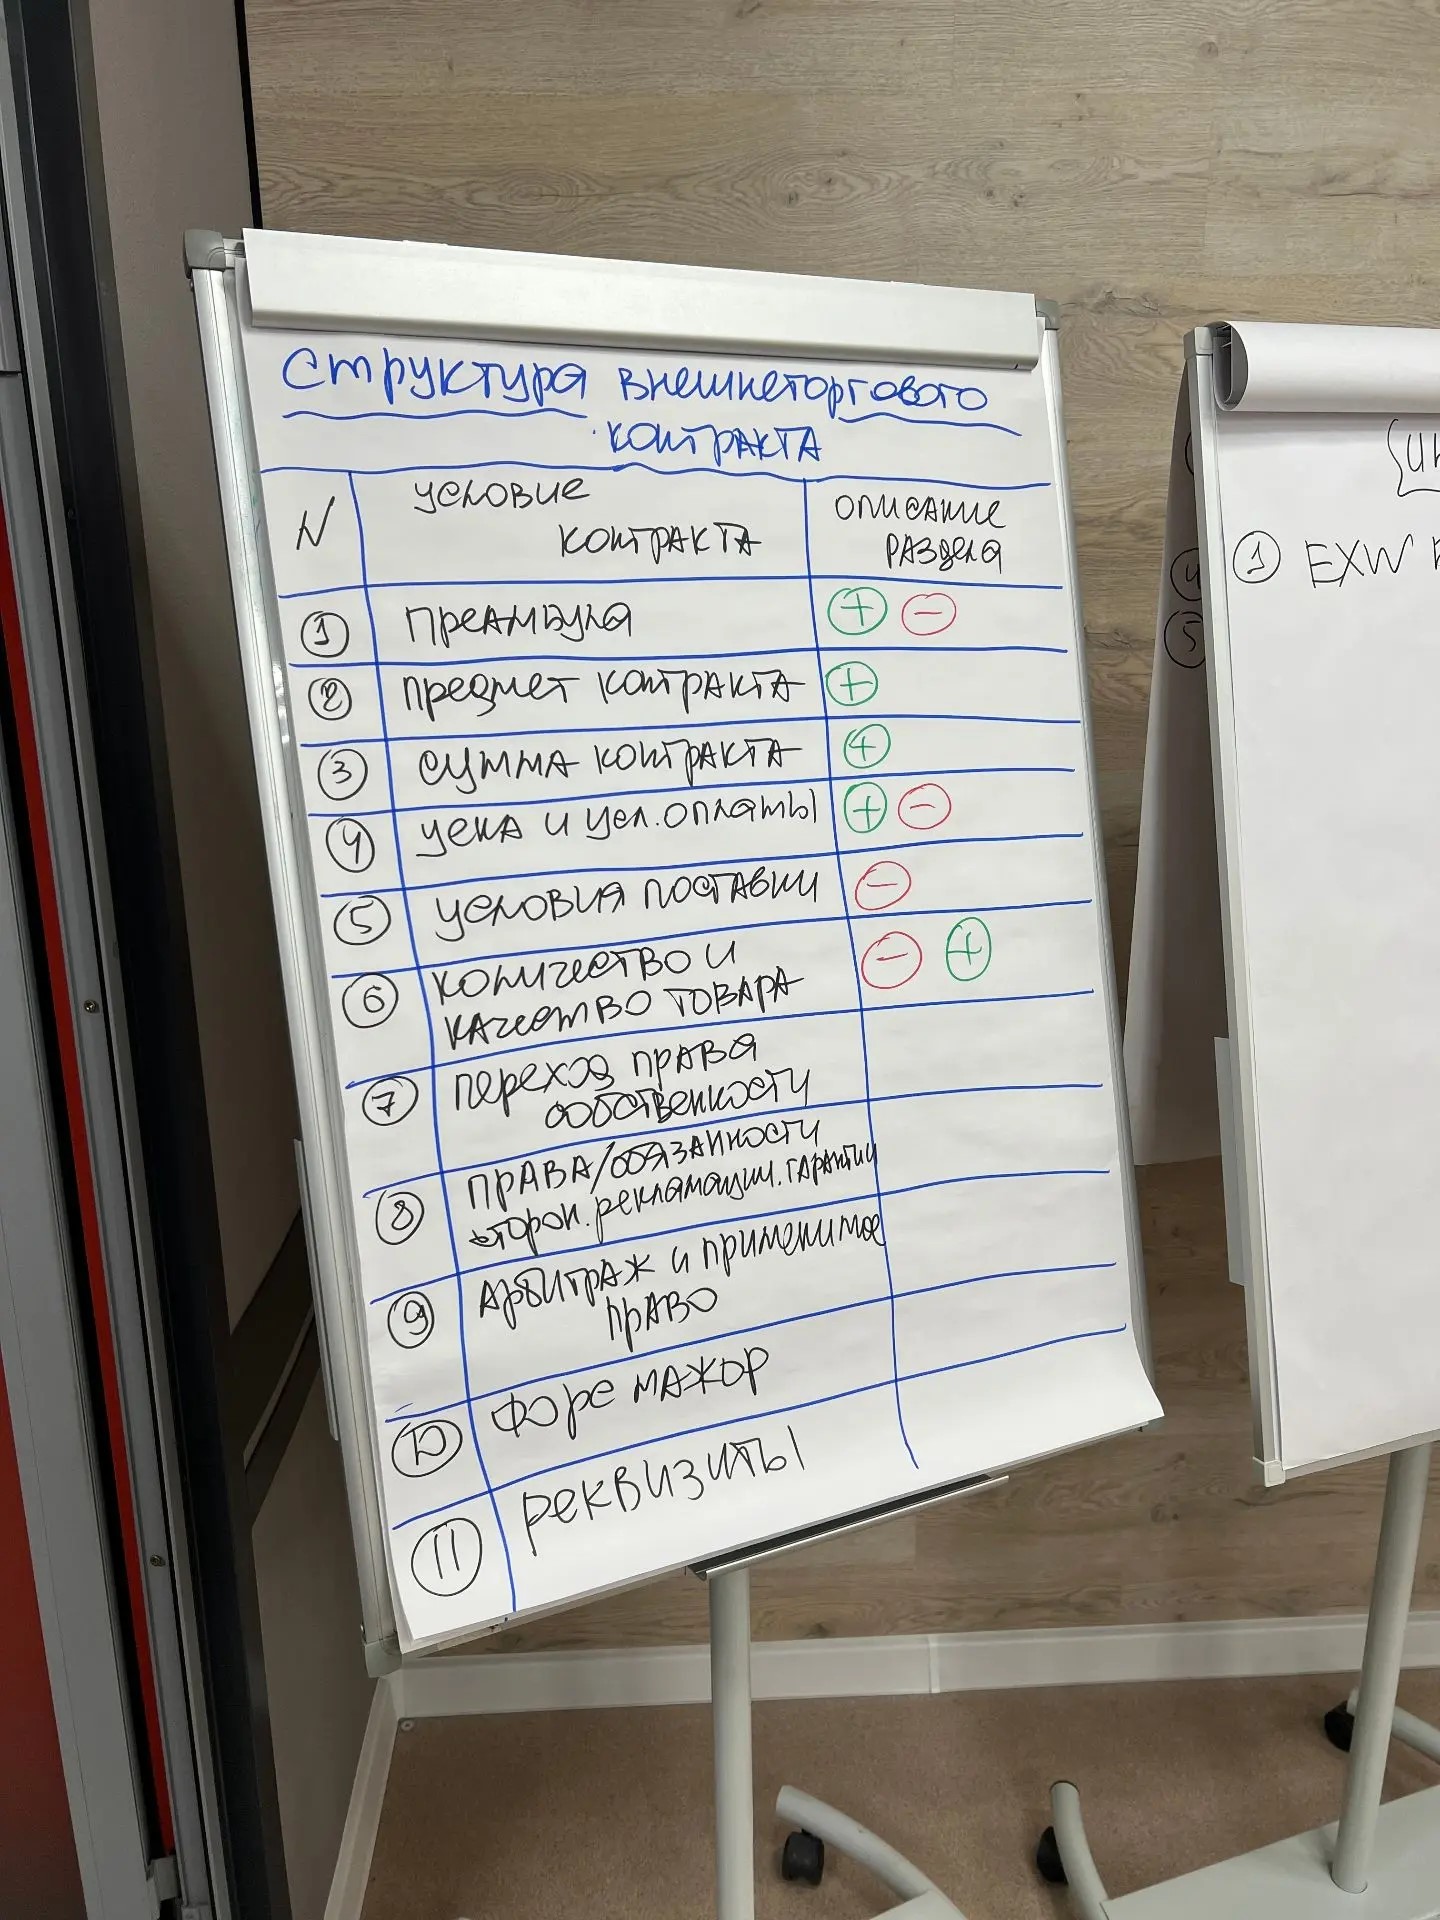 Структура внешнеторгового
контракта
N условие контракта описание раздела
1 преамбула + −
2 предмет контракта +
3 сумма контракта +
4 цена и усл. оплаты + −
5 условия поставки −
6 количество и
качество товара − +
7 переход права
собственности
8 права/обязанности
сторон. рекламации. гарантии
9 арбитраж и применимое
право
10 форс мажор
11 реквизиты
1 EXW
4
5